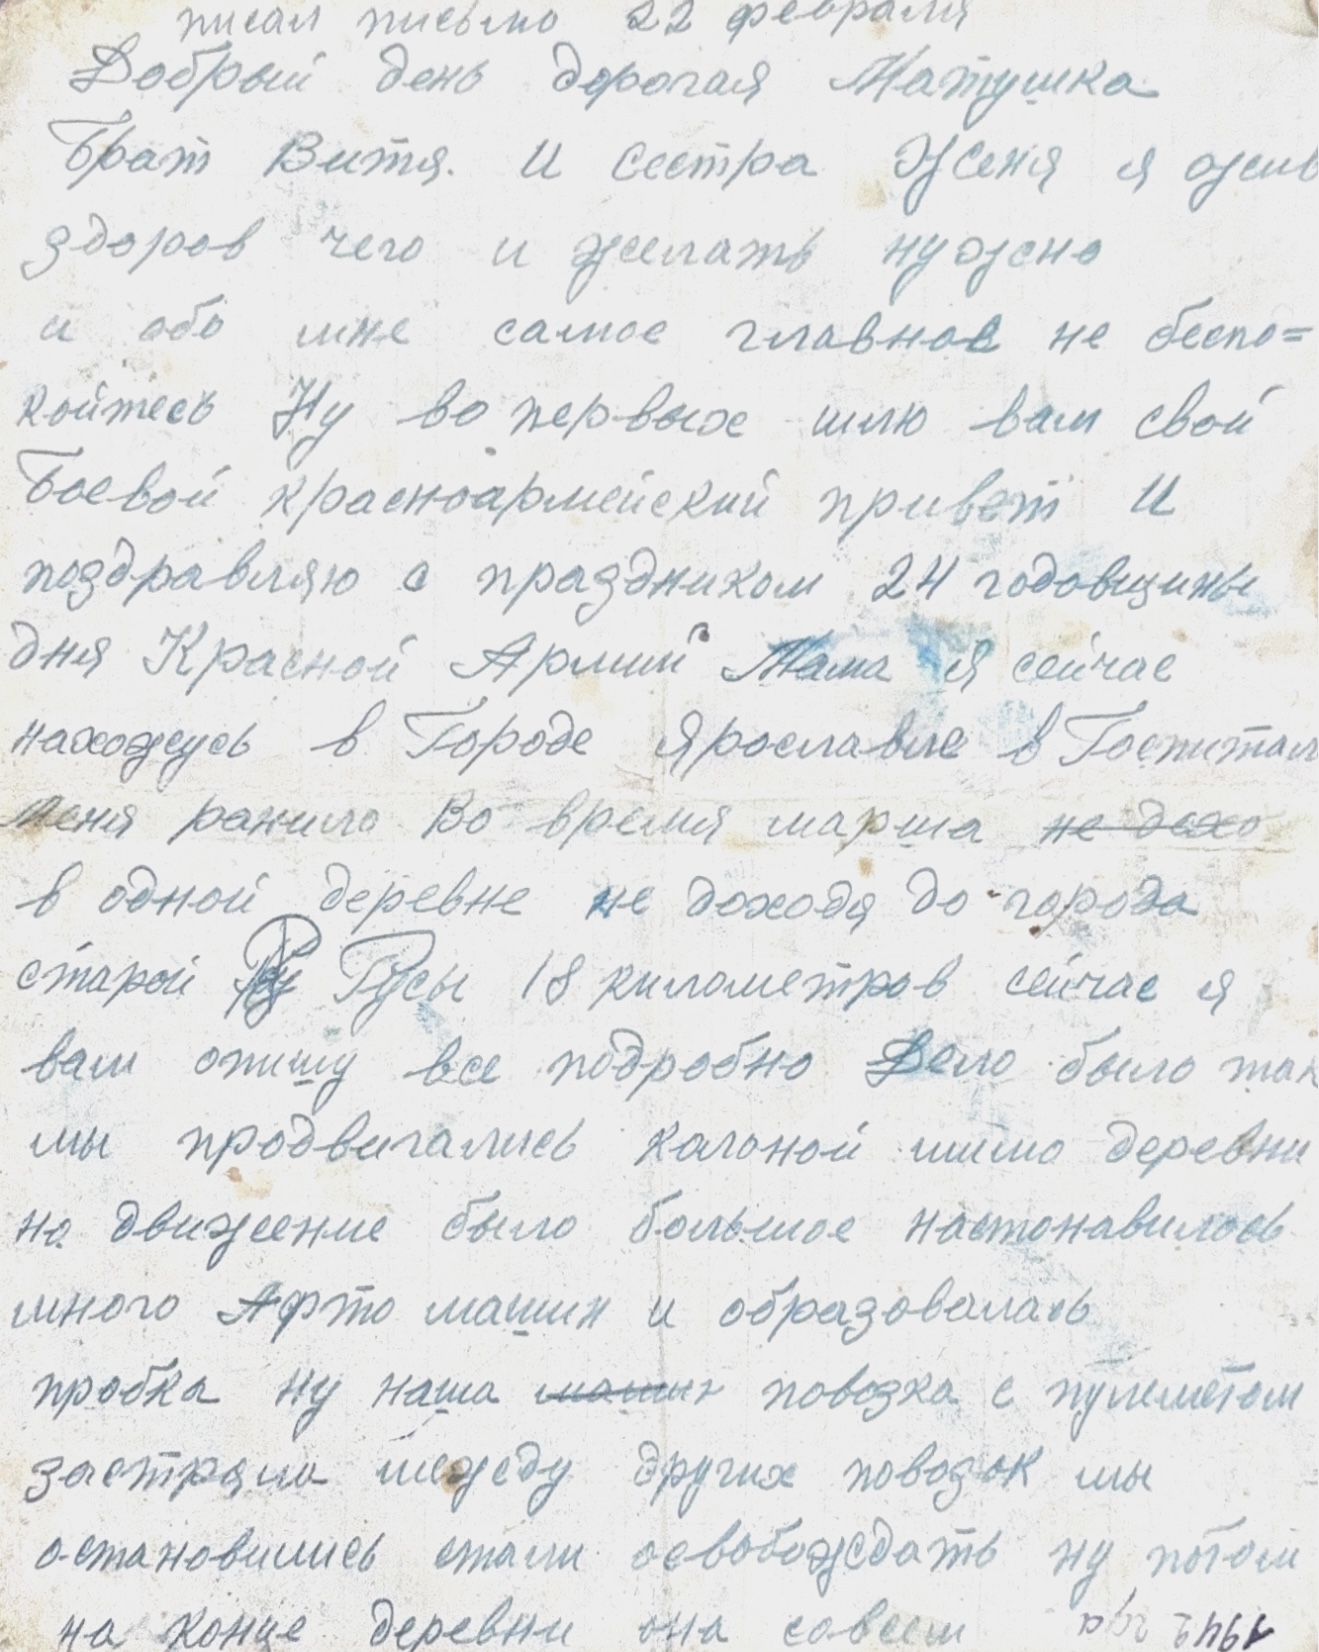 писал письмо 22 февраля
Добрый день дорогая Матушка
Брат Витя. И сестра Женя я жив
здоров чего и желать нужно
и обо мне самое главное не беспо=
койтесь Ну во первых шлю вам свой
Боевой красноармейский привет И
поздравляю с праздником 24 годовщины
дня Красной Армии Мама я сейчас
нахожусь в Городе Ярославле в Госпитал
меня ранило Во время марша не дохо
в одной деревне не доходя до города
старой Ру Русы 18 километров сейчас я
вам опишу все подробно Дело было так
мы продвигались колоной мимо деревни
но движение было большое настонавилось
много Афто машин и образовалась
пробка ну наша машин повозка с пулеметом
застряла между других повозок мы
остановились стали освобождать ну потом
на конце деревни она совсем
1942 год